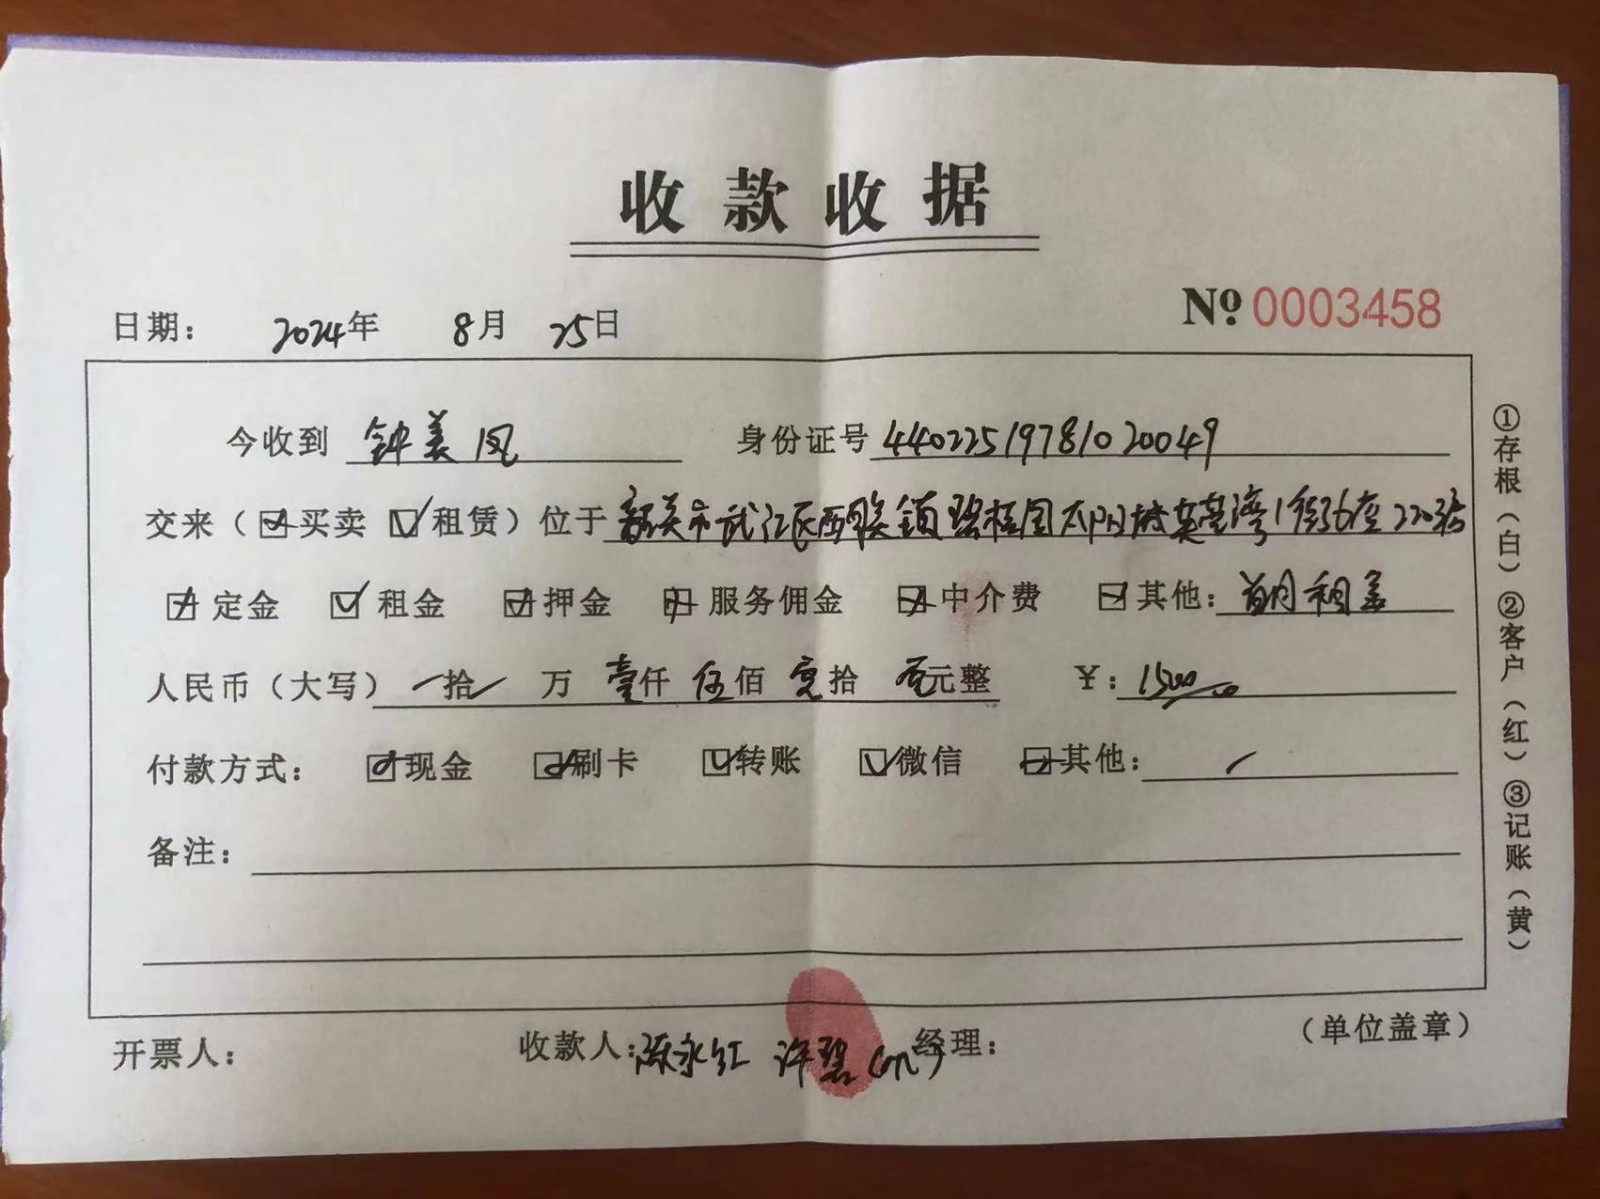 收款收据
№ 0003458
日期： 2024年 8月 25日
今收到 钟美凤 身份证号 44022519781020049
交来（☑买卖 ☑租赁）位于 韶关市武江区西联镇碧桂园太阳城英荟湾1街36座220号
☑定金 ☑租金 ☑押金 ☑服务佣金 ☑中介费 ☑其他： 首月租金
人民币（大写） 拾 万 壹仟 伍佰 零拾 元整 ￥： 1500.00
付款方式： ☑现金 ☑刷卡 ☑转账 ☑微信 ☑其他：
备注：
开票人： 收款人：陈永红 许碧 经理： （单位盖章）
①存根（白）②客户（红）③记账（黄）